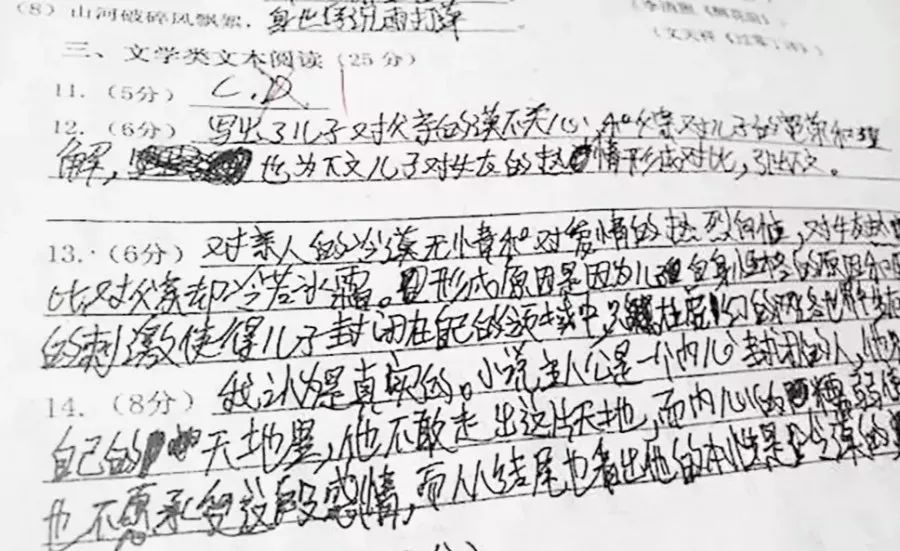 (8) 山河破碎风飘絮,身世浮沉雨打萍
(李清照《醉花阴》)
(文天祥《过零丁洋》)
三、文学类文本阅读(25分)
11. (5分) C.D
12. (6分) 写出了儿子对父亲的漠不关心,和父亲对儿子的和理
解,也为下文儿子对女友的热情形成对比,引出下文。
13. (6分) 对亲人的冷漠无情和对爱情的热烈向值,对女友热
比,对父亲却冷若冰霜。形成原因是因为儿自身性格的原因和
的刺激使得儿子封闭在自己的领域中,只
14. (8分) 我认为是真实的。小说主人公是一个内心封闭的人,他
自己的天地里,他不敢走出这片天地,而内心的弱使
也不愿承受这段感情,而从结尾也看出他的本性是冷漠的